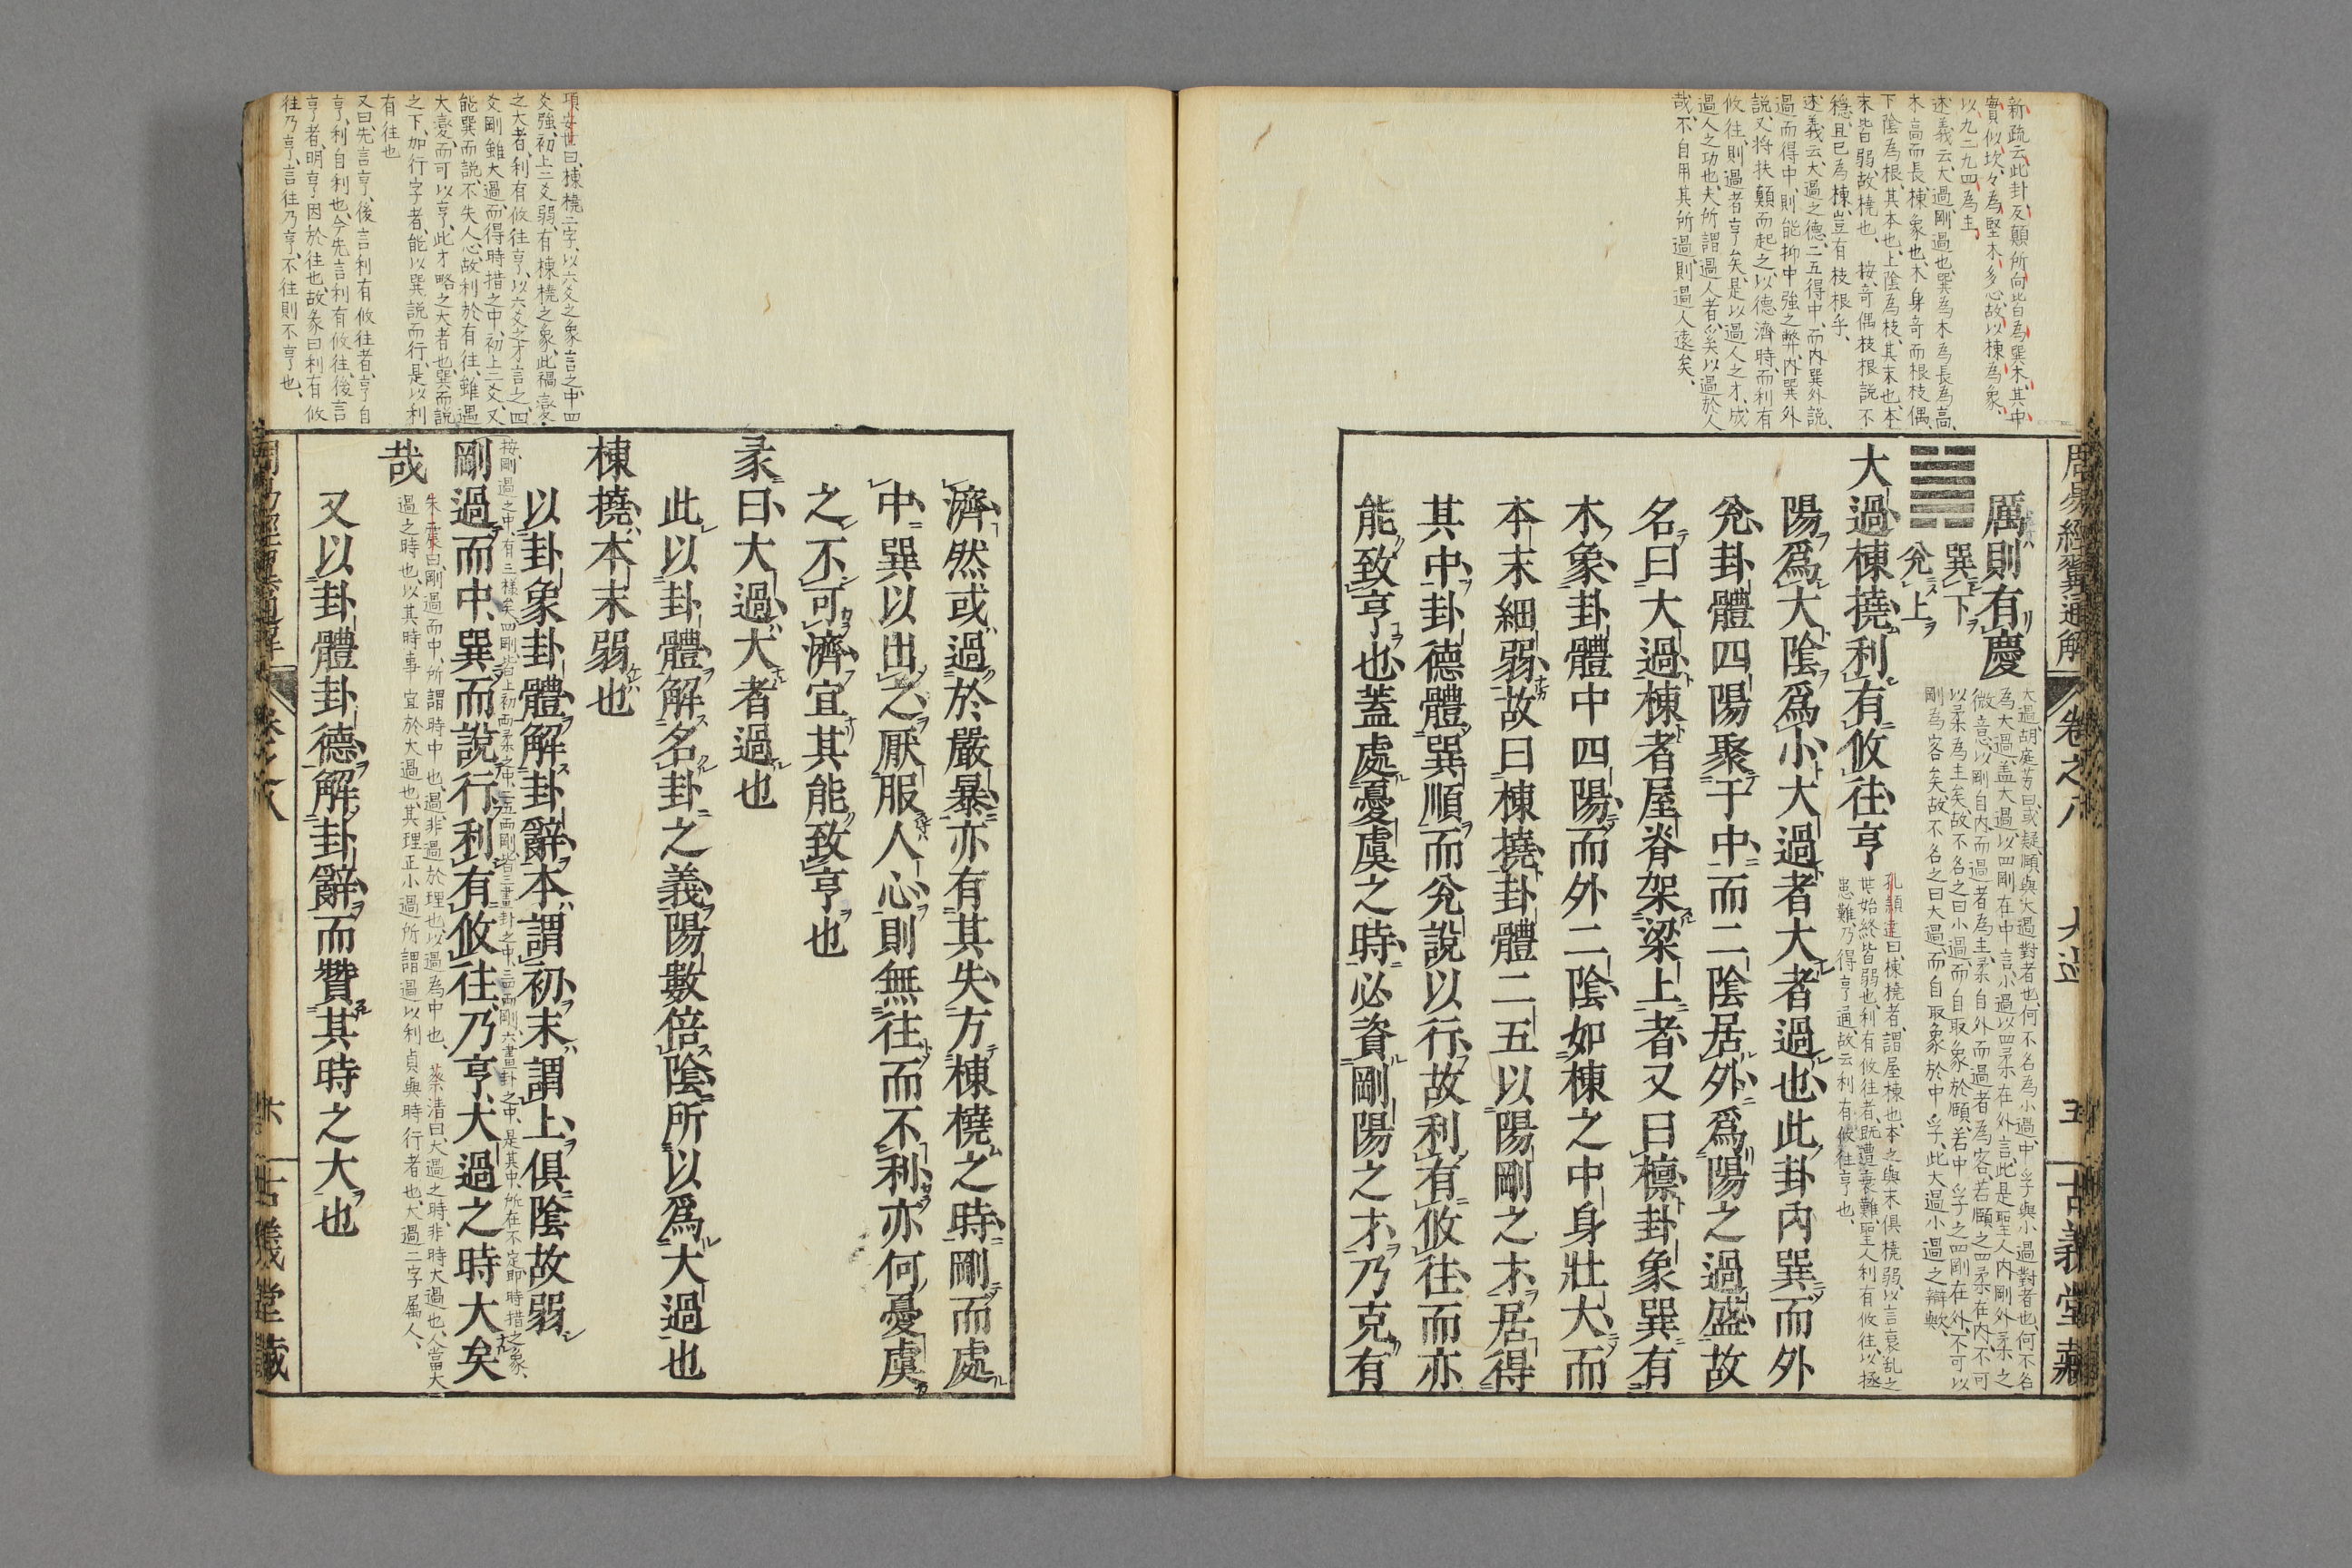 周易經翼通解
卷之八
大過
五
古義堂藏
新疏云此卦反顛所向皆為巽木其中
實似坎々為堅木多心故以棟為象
以九二九四為主
述義云大過剛過也巽為木為長為高
木高而長棟象也木身奇而根枝偶
下陰為根其本也上陰為枝其末也本
末皆弱故橈也 按奇偶枝根說不
穩且已為棟豈有枝根乎
述義云大過之德二五得中而內巽外說
過而得中則能抑中強之弊內巽外
說又將扶顛而起之以德濟時而利有
攸往則過者亨矣是以過人之才成
過人之功也夫所謂過人者以過於人
哉不自用其所過則過人遠矣
厲則有慶
大過胡庭芳曰或疑頤與大過對者也何不名為小過中孚與小過對者也何不名
為大過蓋大過以四剛在中言小過以四柔在外言此是聖人內剛外柔之
微意以剛自內而過者為主柔自外而過者為客若頤之四柔在內不可
以柔為主矣故不名之曰小過而自取象於頤若中孚之四剛在外不可以
剛為客矣故不名之曰大過而自取象於中孚此大過小過之辯歟
巽下
兌上
大過棟撓利有攸往亨
孔穎達曰棟橈者謂屋棟也本之與末俱橈弱以言衰乱之
世始終皆弱也利有攸往者既遭衰難聖人利有攸往以拯
患難乃得亨通故云利有攸往亨也
陽爲大陰爲小大過者大者過也此卦內巽而外
兌卦體四陽聚于中而二陰居外爲陽之過盛故
名曰大過棟者屋脊架梁上者又曰檁卦象巽有
木象卦體中四陽而外二陰如棟之中身壯大而
本末細弱故曰棟撓卦體二五以陽剛之才居得
其中卦德體巽順而兌說以行故利有攸往而亦
能致亨也蓋處憂虞之時必資剛陽之才乃克有
濟然或過於嚴暴亦有其失方棟橈之時剛而處
中巽以出之厭服人心則無往而不利亦何憂虞
之不可濟宜其能致亨也
彖曰大過大者過也
此以卦體解名卦之義陽數倍陰所以爲大過也
棟撓本末弱也
以卦象卦體解卦辭本謂初末謂上俱陰故弱
按剛過之中有三樣矣四剛皆上初兩柔之中二五兩剛皆三畫卦之中三四兩剛六畫卦之中是其中所在不定即時措之象
剛過而中巽而說行利有攸往乃亨大過之時大矣
哉
朱震曰剛過而中所謂時中也過非過於理也以過為中也 蔡清曰大過之時非時大過也人當大
過之時也以其時事宜於大過也其理正小過所謂過以利貞與時行者也大過二字屬人
又以卦體卦德解卦辭而贊其時之大也
項安世曰棟橈二字以六爻之象言之中四
爻強初上二爻弱有棟橈之象此禍變
之大者利有攸往亨以六爻之才言之四
爻剛雖大過而得時措之中初上二爻又
能巽而說不失人心故利於有往雖遇
大憂而可以亨此才略之大者也巽而說
之下加行字者能以巽說而行是以利
有往也
又曰先言亨後言利有攸往者亨自
亨利自利也今先言利有攸往後言
亨者明亨因於往也故彖曰利有攸
往乃亨言往乃亨不往則不亨也
卷之八
古義堂藏